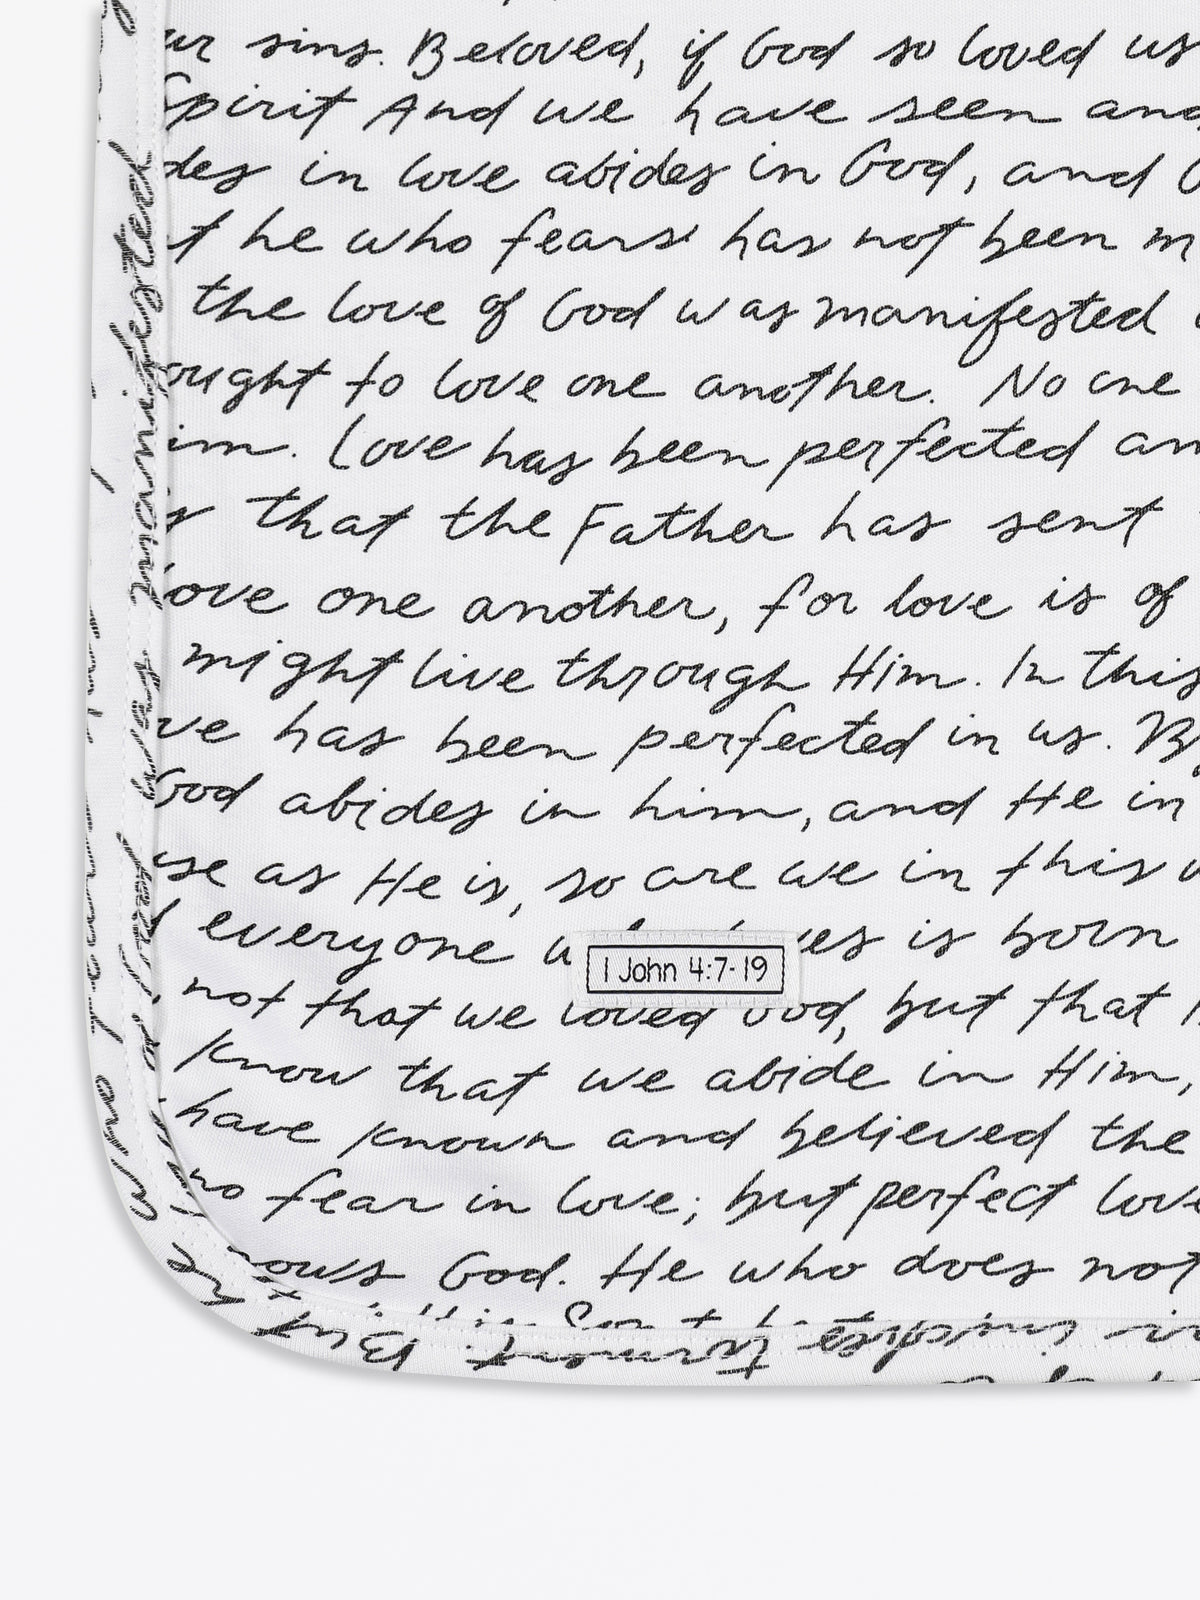 ur sins. Beloved, if God so loved us
Spirit And we have seen and
des in love abides in God, and
he who fears has not been m
the love of God was manifested
ought to love one another. No one
im. Love has been perfected am
that the Father has sent
love one another, for love is of
might live through Him. In this
ve has been perfected in us. By
God abides in him, and He in
use as He is, so are we in this w
everyone w es is born
1 John 4:7-19
not that we loved God, but that
know that we abide in Him,
have known and believed the
no fear in love; but perfect love
nows God. He who does not
was manifested
torment. But